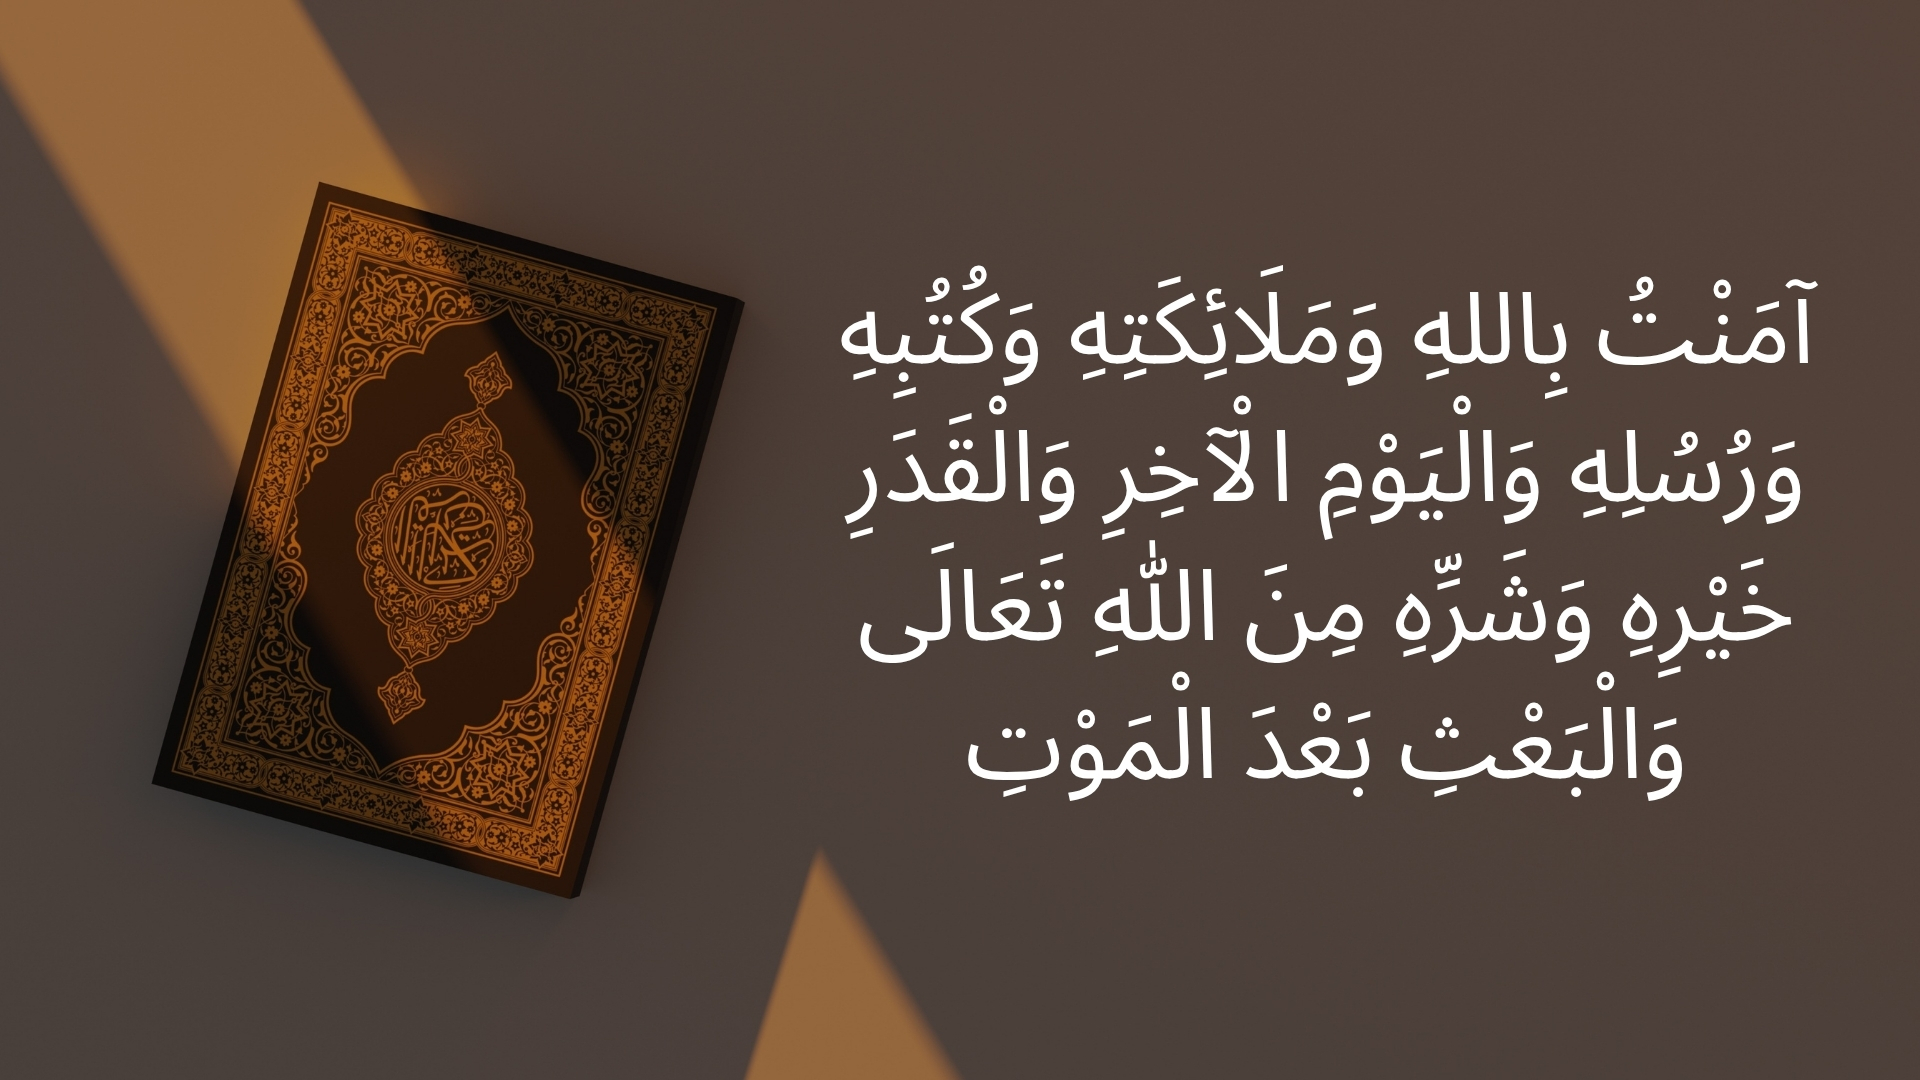 آمَنْتُ بِاللهِ وَمَلَائِكَتِهِ وَكُتُبِهِ
وَرُسُلِهِ وَالْيَوْمِ الْآخِرِ وَالْقَدَرِ
خَيْرِهِ وَشَرِّهِ مِنَ اللّٰهِ تَعَالَى
وَالْبَعْثِ بَعْدَ الْمَوْتِ